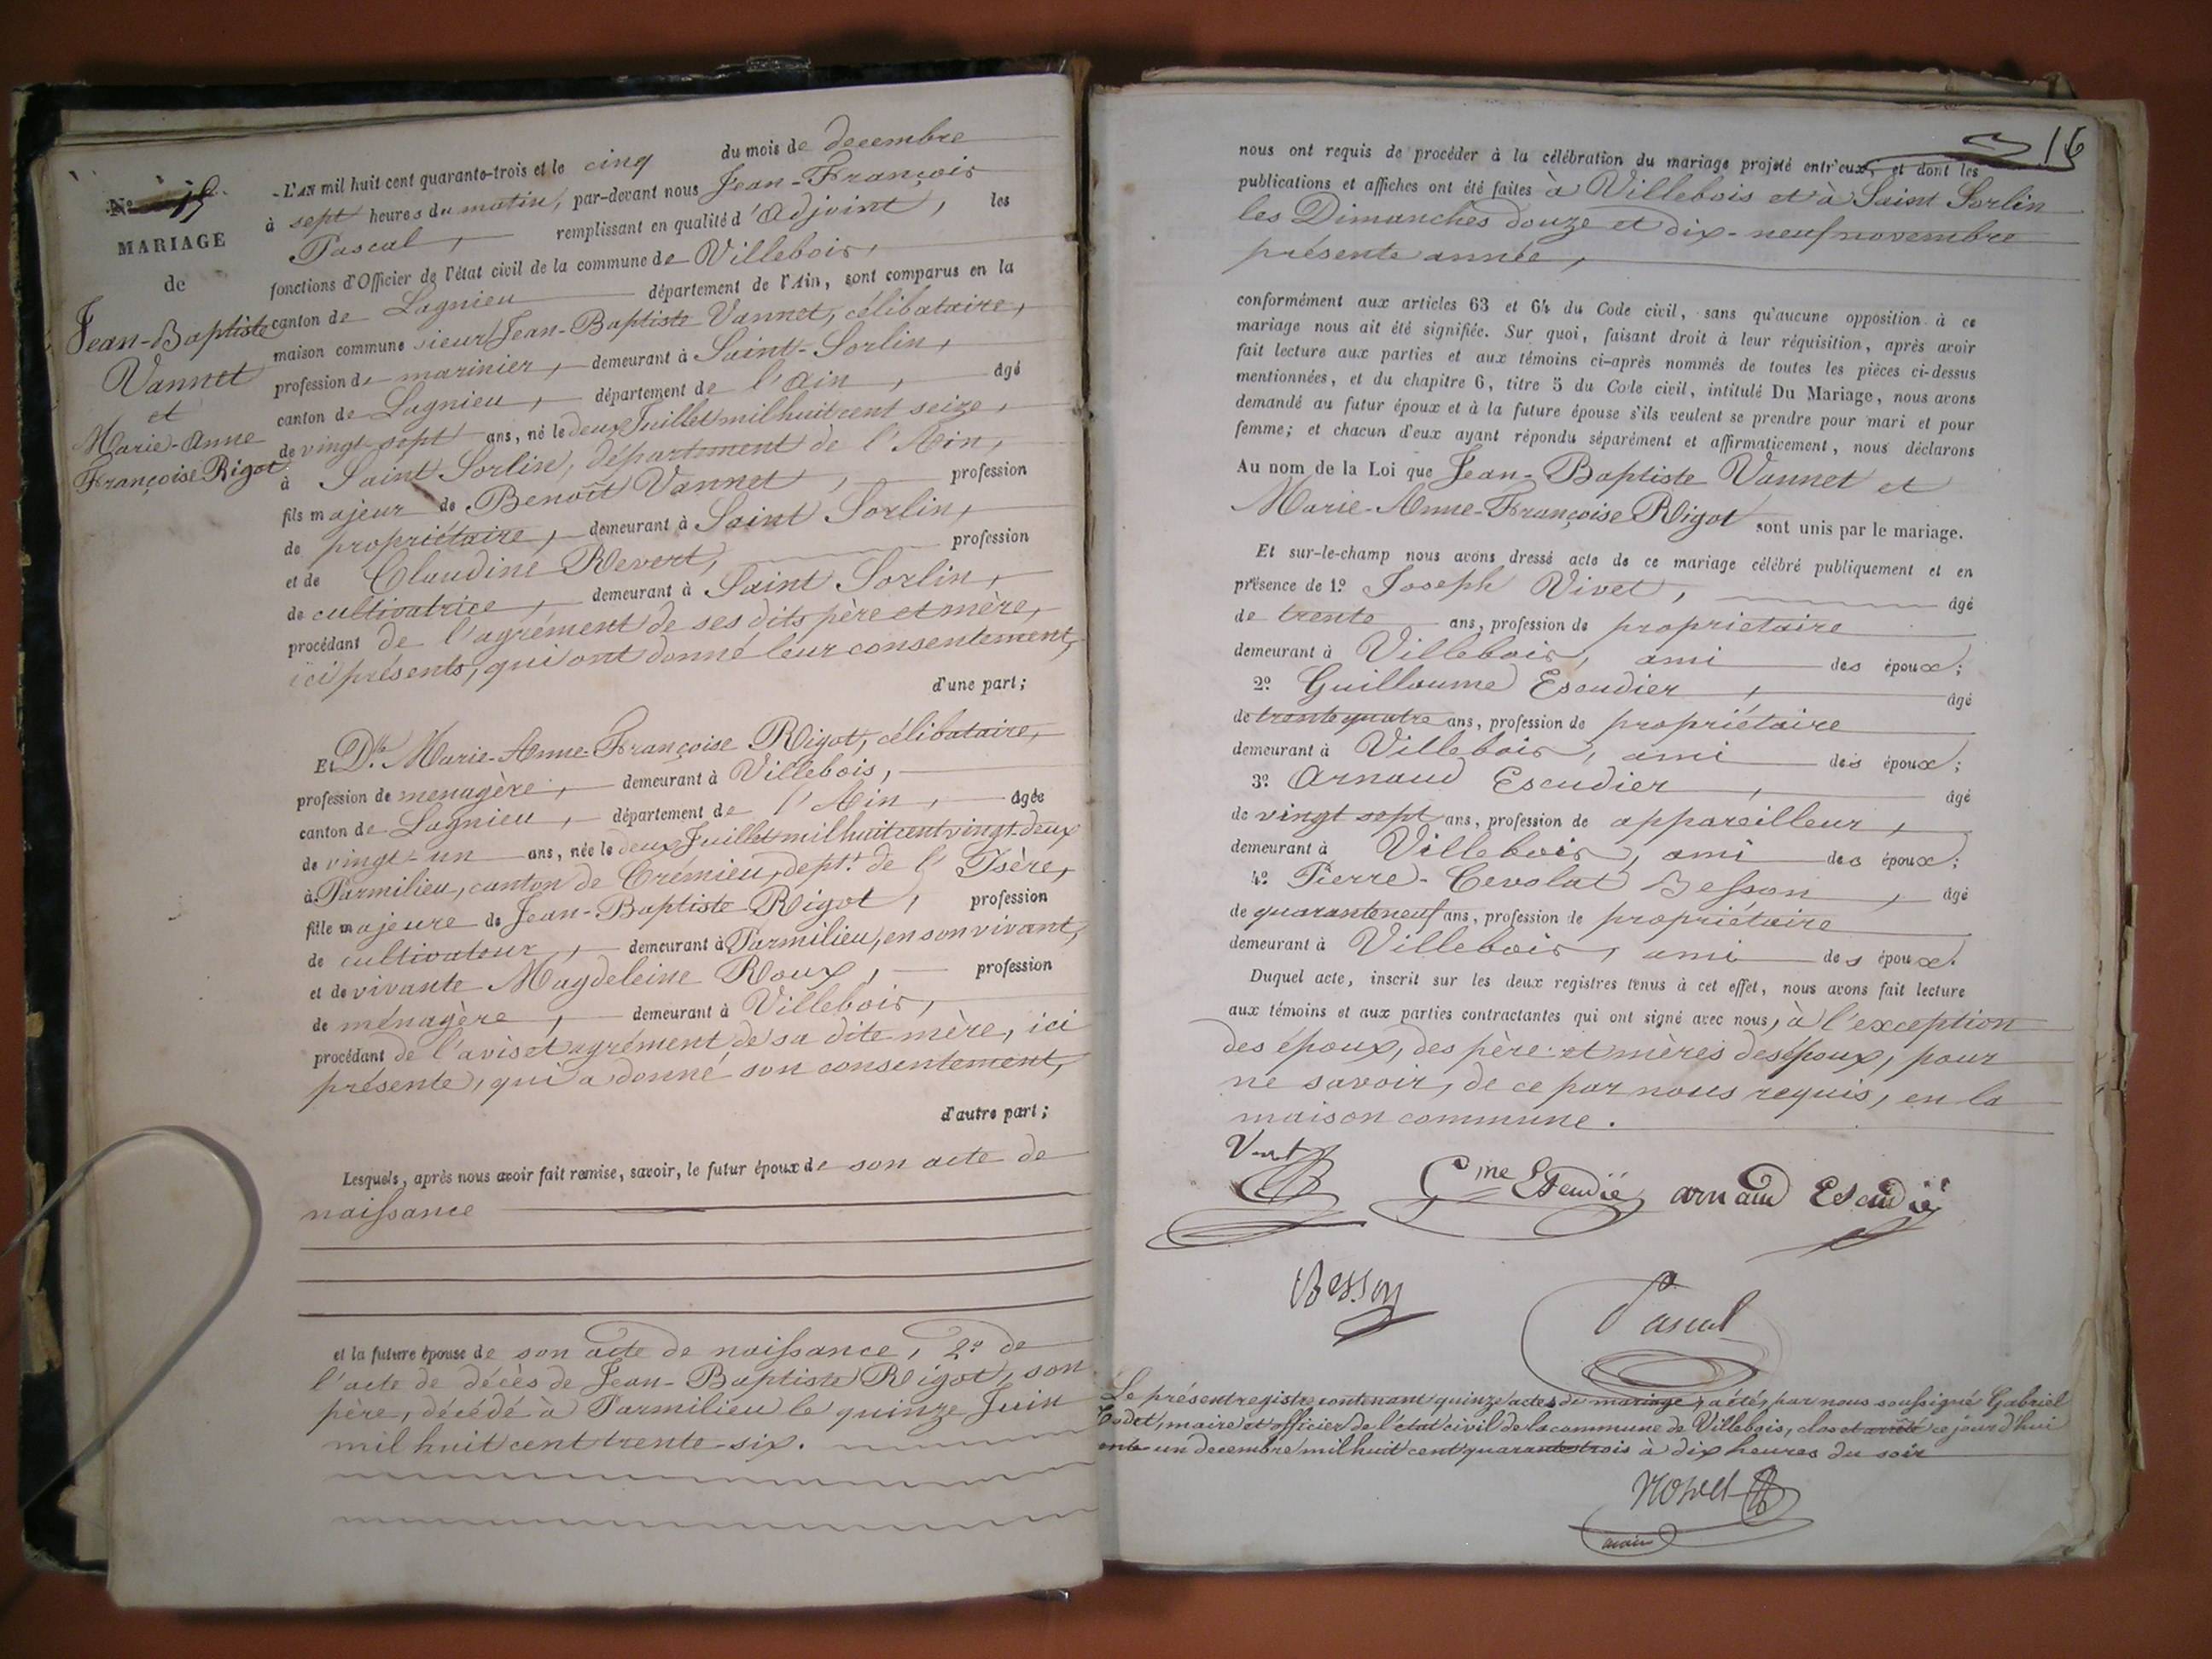 N° 15.
MARIAGE
de
Jean-Baptiste
Vannet
et
Marie-Anne
Françoise Rigot
L'AN mil huit cent quarante-trois et le cinq du mois de decembre
à sept heures du matin, par-devant nous Jean-François
Pascal, remplissant en qualité d'Adjoint, les
fonctions d'Officier de l'état civil de la commune de Villebois,
canton de Lagnieu département de l'Ain, sont comparus en la
maison commune sieur Jean-Baptiste Vannet, célibataire,
profession de marinier, demeurant à Saint-Sorlin,
canton de Lagnieu, département de l'Ain, âgé
de vingt-sept ans, né le deux Juillet mil huit cent seize,
à Saint Sorlin, département de l'Ain,
fils majeur de Benoît Vannet, profession
de propriétaire, demeurant à Saint Sorlin,
et de Claudine Revert, profession
de cultivatrice, demeurant à Saint Sorlin,
procédant de l'agrément de ses dits père et mère,
ici présents, qui ont donné leur consentement,
d'une part;
Et Dlle Marie-Anne-Françoise Rigot, célibataire,
profession de menagère, demeurant à Villebois,
canton de Lagnieu, département de l'Ain, âgée
de vingt-un ans, née le deux Juillet mil huit cent vingt-deux
à Parmilieu, canton de Crémieu, dept. de l'Isère,
fille majeure de Jean-Baptiste Rigot, profession
de cultivateur, demeurant à Parmilieu, en son vivant,
et de vivante Magdeleine Roux, profession
de ménagère, demeurant à Villebois,
procédant de l'avis et agrément de sa dite mère, ici
présente, qui a donné son consentement,
d'autre part;
Lesquels, après nous avoir fait remise, savoir, le futur époux de son acte de
naissance
et la future épouse de son acte de naissance, 2° de
l'acte de décès de Jean-Baptiste Rigot, son
père, décédé à Parmilieu le quinze Juin
mil huit cent trente-six.
16
nous ont requis de procéder à la célébration du mariage projeté entr'eux, et dont les
publications et affiches ont été faites à Villebois et à Saint Sorlin
les Dimanches douze et dix-neuf novembre
présente année,
conformément aux articles 63 et 64 du Code civil, sans qu'aucune opposition à ce
mariage nous ait été signifiée. Sur quoi, faisant droit à leur réquisition, après avoir
fait lecture aux parties et aux témoins ci-après nommés de toutes les pièces ci-dessus
mentionnées, et du chapitre 6, titre 5 du Code civil, intitulé Du Mariage, nous avons
demandé au futur époux et à la future épouse s'ils veulent se prendre pour mari et pour
femme; et chacun d'eux ayant répondu séparément et affirmativement, nous déclarons
Au nom de la Loi que Jean-Baptiste Vannet et
Marie-Anne-Françoise Rigot sont unis par le mariage.
Et sur-le-champ nous avons dressé acte de ce mariage célébré publiquement et en
présence de 1° Joseph Vivet, âgé
de trente ans, profession de propriétaire
demeurant à Villebois, ami des époux;
2° Guillaume Escudier, âgé
de trente quatre ans, profession de propriétaire
demeurant à Villebois, ami des époux;
3° Arnaud Escudier, âgé
de vingt sept ans, profession de appareilleur,
demeurant à Villebois, ami des époux;
4° Pierre-Cevolat Besson, âgé
de quarante neuf ans, profession de propriétaire
demeurant à Villebois, ami des époux.
Duquel acte, inscrit sur les deux registres tenus à cet effet, nous avons fait lecture
aux témoins et aux parties contractantes qui ont signé avec nous, à l'exception
des époux, des père et mères des époux, pour
ne savoir, de ce par nous requis, en la
maison commune.
Gme Escudié arnaud Escudié
Besson
Pascal
Le présent registre contenant quinze actes de mariage, a été, par nous soussigné Gabriel
maire et officier de l'état civil de la commune de Villebois, clos et arrêté ce jourd'hui
un decembre mil huit cent quarante trois à dix heures du soir
maire